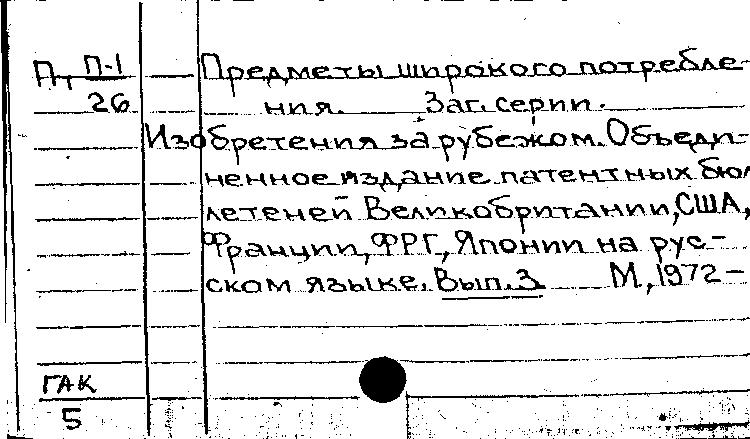 П, П-1 Предметы широкого потребле-
26 ния. Заг. серии.
Изобретения за рубежом. Объеди-
ненное издание патентных бюл
летеней Великобритании, США,
Франции, ФРГ, Японии на рус-
ском языке. Вып. 3 М, 1972 –
ГАК
5